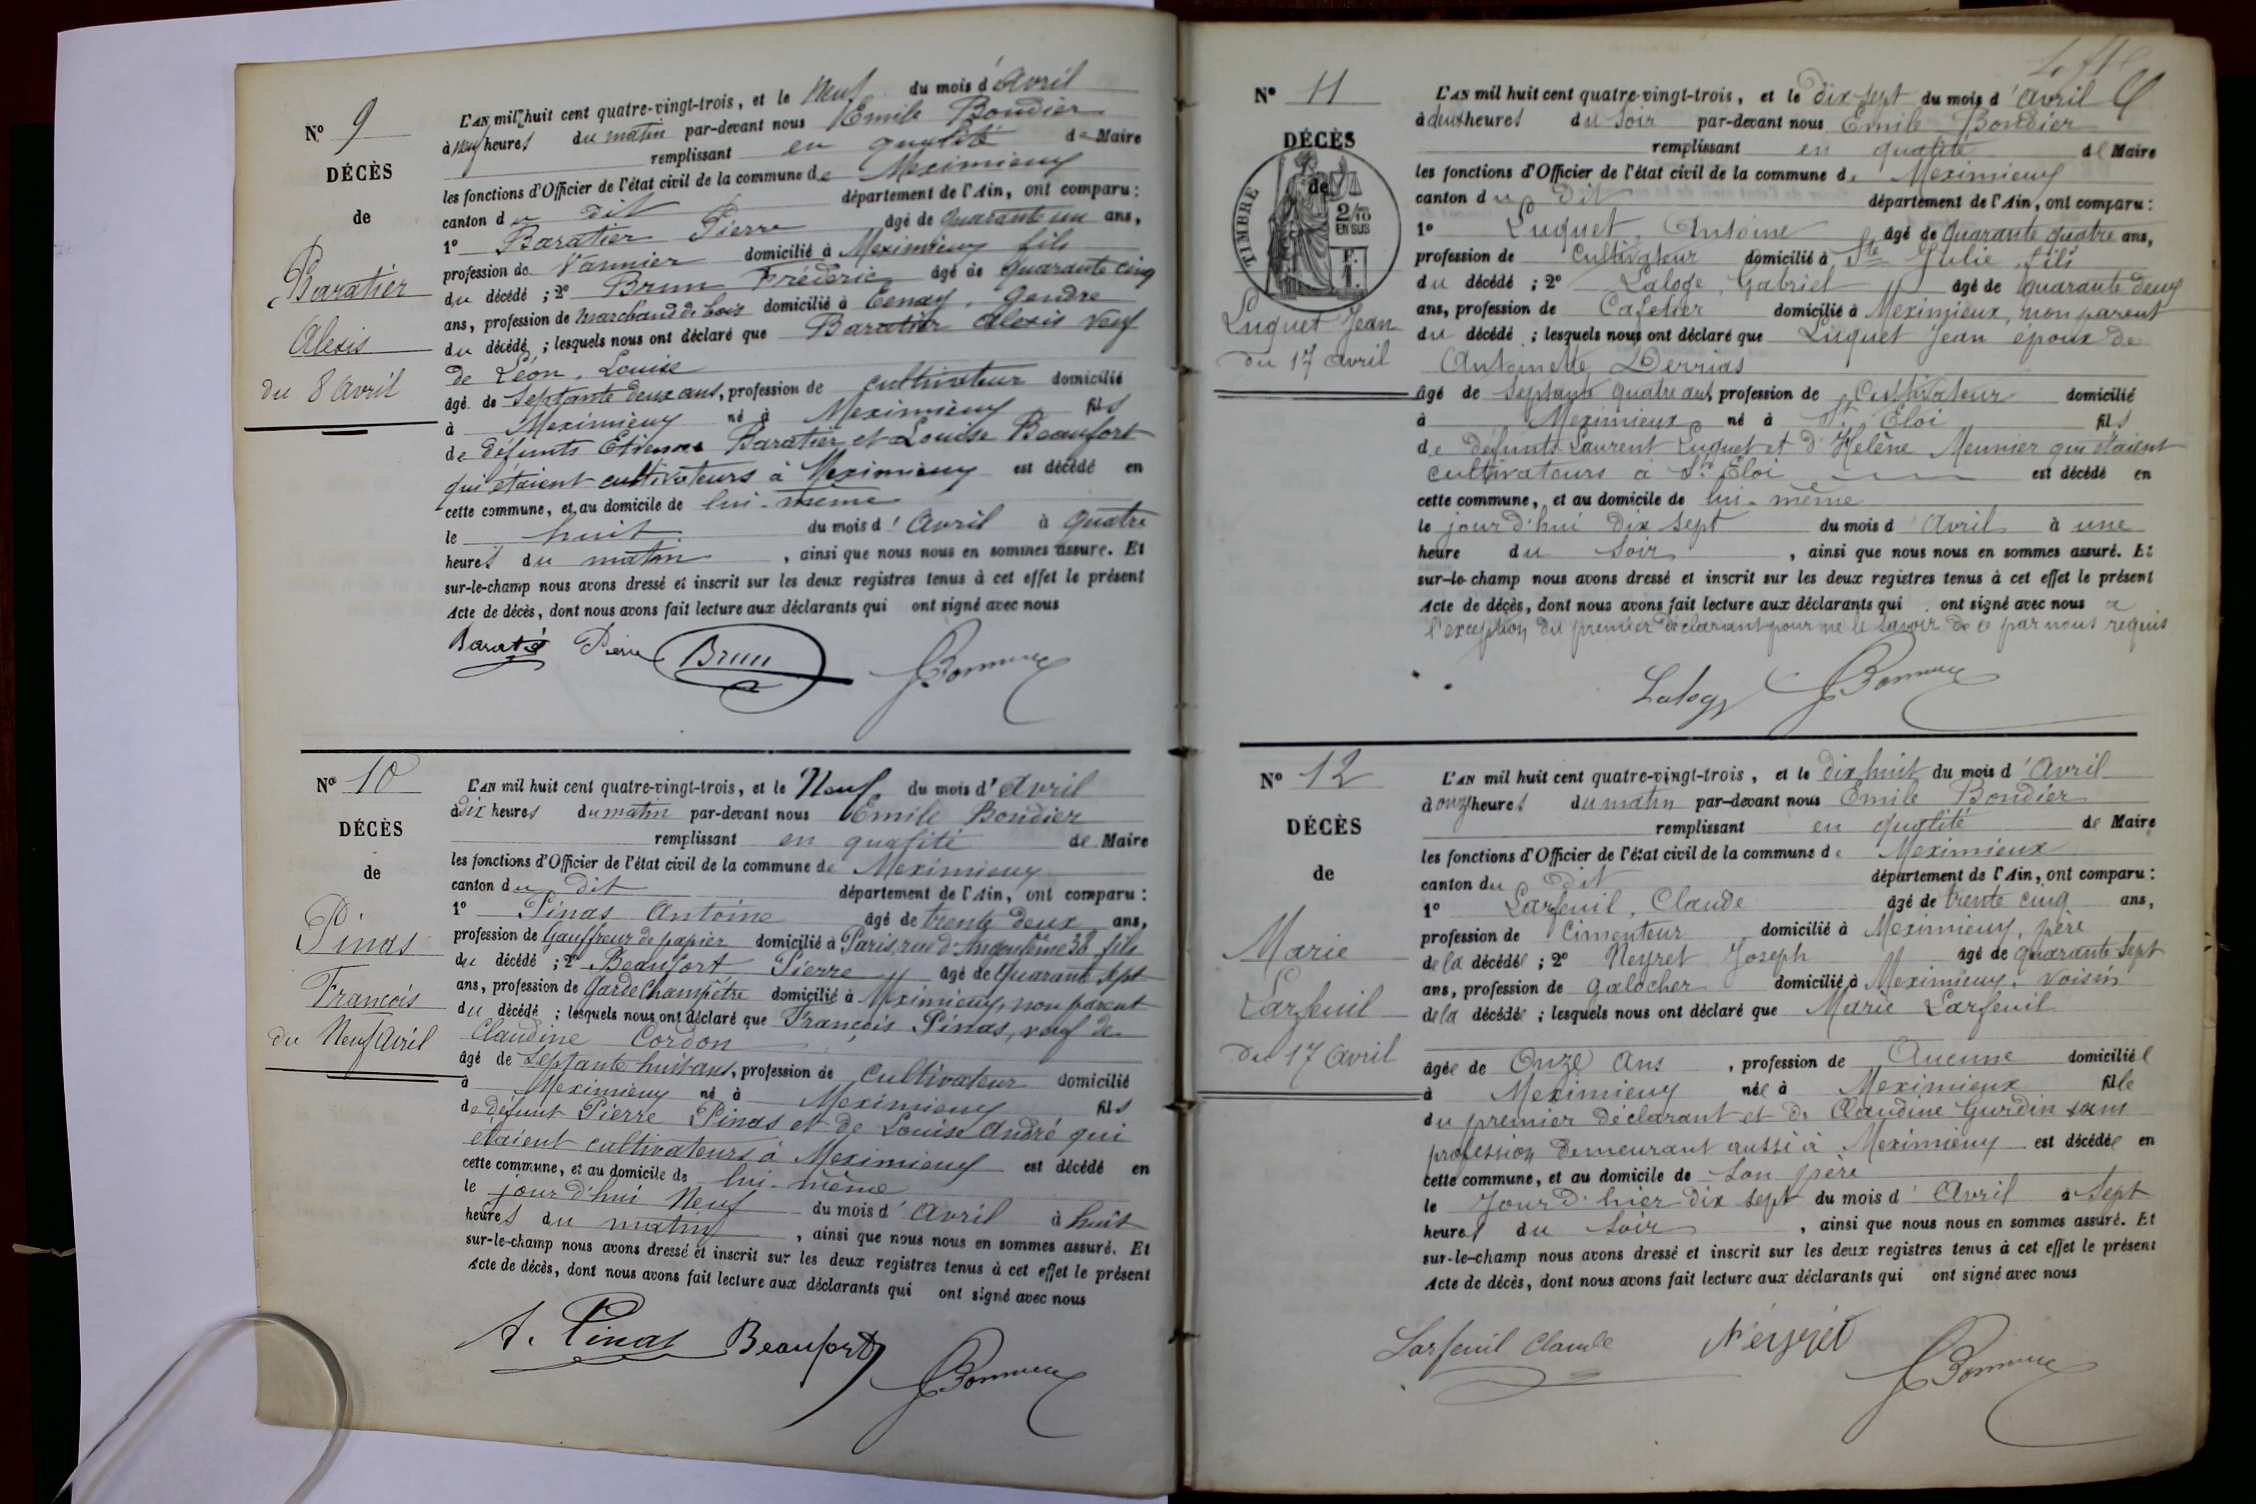 N° 9
DÉCÈS
de
Baratier
Alexis
du 8 avril
L'AN mil huit cent quatre-vingt-trois, et le Neuf du mois d'Avril
à neuf heures du matin par-devant nous Emile Bondier
remplissant en qualité de Maire
les fonctions d'Officier de l'état civil de la commune de Meximieux
canton du dit département de l'Ain, ont comparu :
1° Baratier Pierre âgé de quarante un ans,
profession de Vannier domicilié à Meximieux fils
du décédé ; 2° Brun Fréderic âgé de quarante cinq
ans, profession de marchand de bois domicilié à Tenay, Gendre
du décédé ; lesquels nous ont déclaré que Baratier Alexis veuf
de Léon, Louise
âgé de septante deux ans, profession de cultivateur domicilié
à Meximieux né à Meximieux fils
de défunts Etienne Baratier et Louise Beaufort
qui étaient cultivateurs à Meximieux est décédé en
cette commune, et au domicile de lui-même
le huit du mois d'Avril à quatre
heures du matin, ainsi que nous nous en sommes assuré. Et
sur-le-champ nous avons dressé et inscrit sur les deux registres tenus à cet effet le présent
Acte de décès, dont nous avons fait lecture aux déclarants qui ont signé avec nous
Pierre Brun
N° 10
DÉCÈS
de
Pinas
François
du Neuf Avril
L'AN mil huit cent quatre-vingt-trois, et le Neuf du mois d'Avril
à dix heures du matin par-devant nous Emile Bondier
remplissant en qualité de Maire
les fonctions d'Officier de l'état civil de la commune de Meximieux
canton du dit département de l'Ain, ont comparu :
1° Pinas Antoine âgé de trente deux ans,
profession de Gauffreur de papier domicilié à Paris, rue d'Angoulême 38 fils
du décédé ; 2° Beaufort Pierre âgé de Quarante sept
ans, profession de Garde Champêtre domicilié à Meximieux, non parent
du décédé ; lesquels nous ont déclaré que François Pinas, veuf de
Claudine Cordon
âgé de septante huit ans, profession de cultivateur domicilié
à Meximieux né à Meximieux fils
de défunt Pierre Pinas et de Louise André qui
étaient cultivateurs à Meximieux est décédé en
cette commune, et au domicile de lui-même
le jour d'hui Neuf du mois d'Avril à huit
heures du matin, ainsi que nous nous en sommes assuré. Et
sur-le-champ nous avons dressé et inscrit sur les deux registres tenus à cet effet le présent
Acte de décès, dont nous avons fait lecture aux déclarants qui ont signé avec nous
A. Pinas Beaufort
N° 11
DÉCÈS
de
TIMBRE
2/10
EN SUS
Luquet Jean
du 17 avril
L'AN mil huit cent quatre-vingt-trois, et le dix sept du mois d'Avril
à deux heures du soir par-devant nous Emile Bondier
remplissant en qualité de Maire
les fonctions d'Officier de l'état civil de la commune de Meximieux
canton du dit département de l'Ain, ont comparu :
1° Luquet, Antoine âgé de Quarante quatre ans,
profession de Cultivateur domicilié à Ste Julie, fils
du décédé ; 2° Laloge, Gabriel âgé de quarante deux
ans, profession de Cafetier domicilié à Meximieux, non parent
du décédé ; lesquels nous ont déclaré que Luquet Jean époux de
Antoinette Derrias
âgé de septante quatre ans, profession de Cultivateur domicilié
à Meximieux né à St. Eloi fils
de défunts Laurent Luquet et d'Helène Meunier qui étaient
cultivateurs à St. Eloi est décédé en
cette commune, et au domicile de lui-même
le jour d'hui dix sept du mois d'Avril à une
heure du soir, ainsi que nous nous en sommes assuré. Et
sur-le-champ nous avons dressé et inscrit sur les deux registres tenus à cet effet le présent
Acte de décès, dont nous avons fait lecture aux déclarants qui ont signé avec nous à
l'exception du premier déclarant pour ne le savoir de ce par nous requis
N° 12
DÉCÈS
de
Marie
Larfeuil
du 17 Avril
L'AN mil huit cent quatre-vingt-trois, et le dix huit du mois d'Avril
à onze heures du matin par-devant nous Emile Bondier
remplissant en qualité de Maire
les fonctions d'Officier de l'état civil de la commune de Meximieux
canton du dit département de l'Ain, ont comparu :
1° Larfeuil, Claude âgé de trente cinq ans,
profession de Cimenteur domicilié à Meximieux, père
de la décédée ; 2° Neyret Joseph âgé de quarante sept
ans, profession de galocher domicilié à Meximieux, voisin
de la décédée ; lesquels nous ont déclaré que Marie Larfeuil
âgée de Onze ans, profession de Aucune domiciliée
à Meximieux née à Meximieux fille
du premier déclarant et de Claudine Gurdin sans
profession demeurant aussi à Meximieux est décédée en
cette commune, et au domicile de son père
le Jour d'hier dix sept du mois d'Avril à sept
heures du soir, ainsi que nous nous en sommes assuré. Et
sur-le-champ nous avons dressé et inscrit sur les deux registres tenus à cet effet le présent
Acte de décès, dont nous avons fait lecture aux déclarants qui ont signé avec nous
Larfeuil Claude Neyret